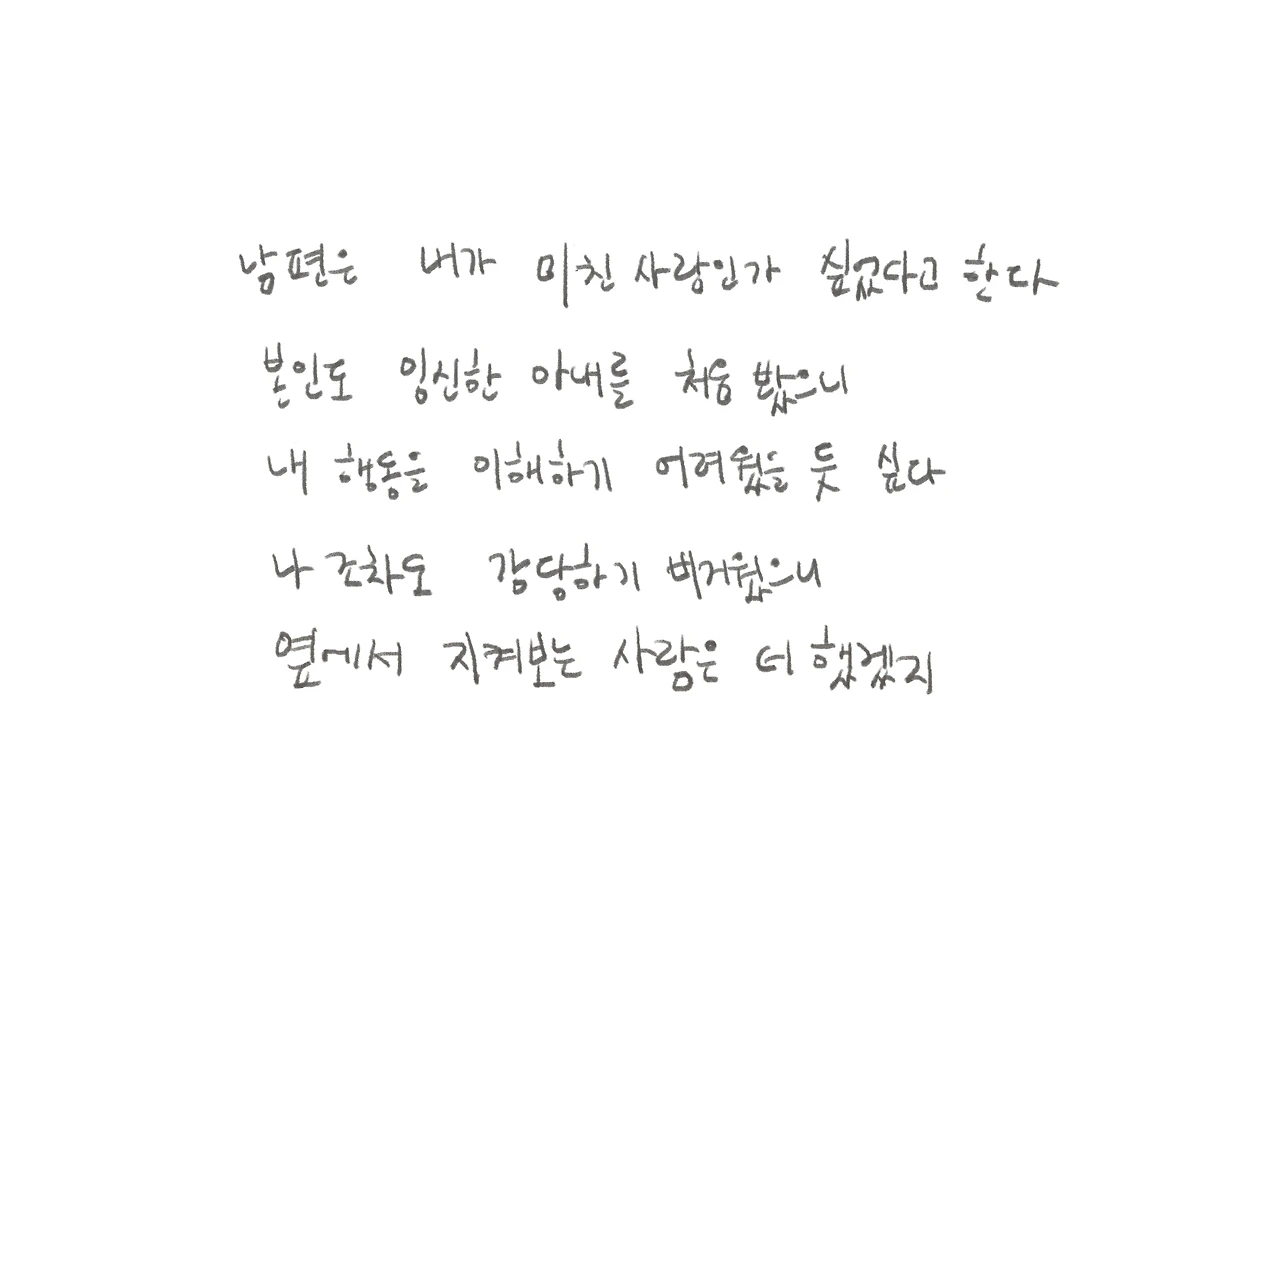 남편은 내가 미친 사람인가 싶었다고 한다
본인도 임신한 아내를 처음 봤으니
내 행동을 이해하기 어려웠을 듯 싶다
나 조차도 감당하기 버거웠으니
옆에서 지켜보는 사람은 더 했겠지